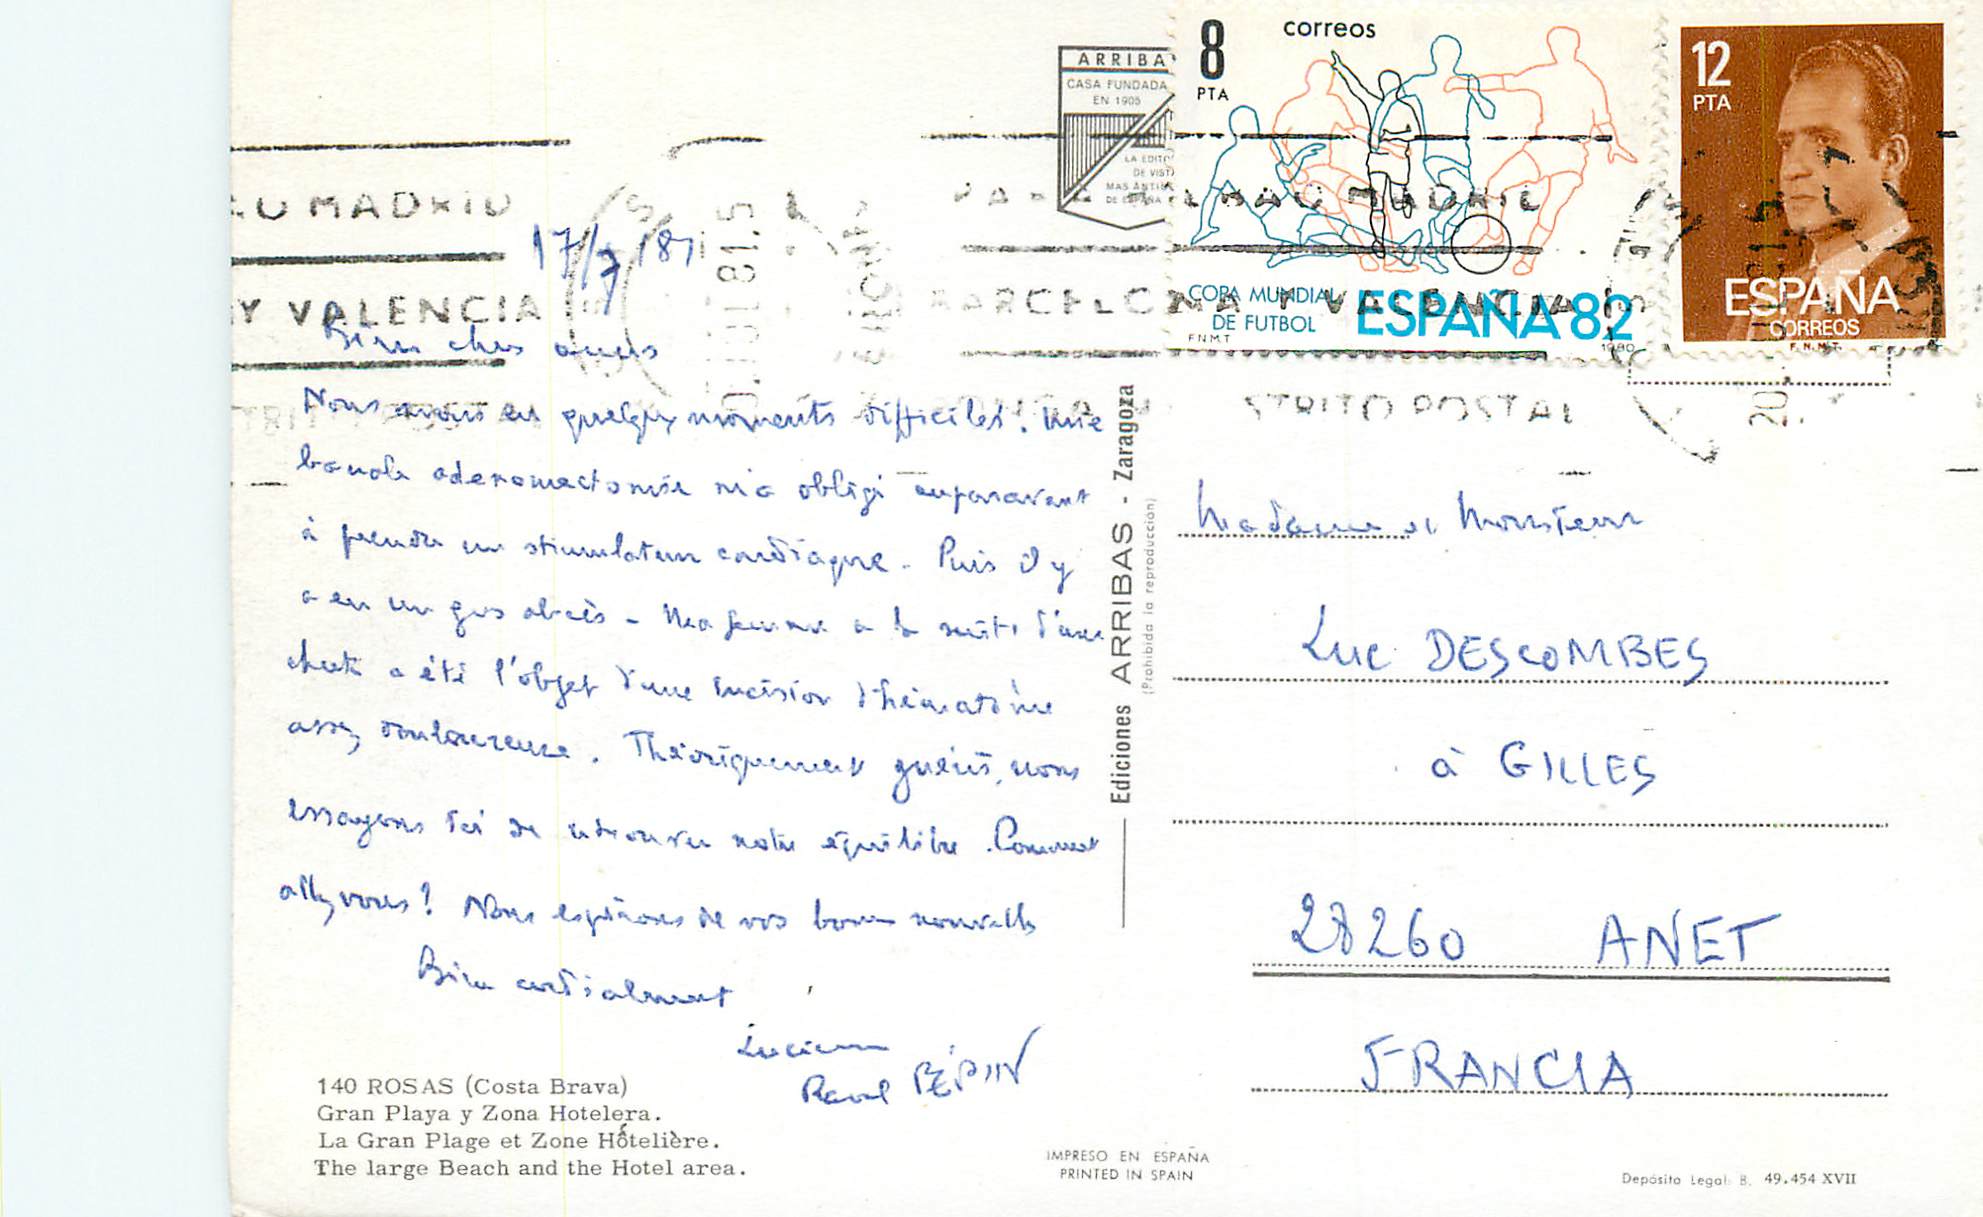 ARRIBA
CASA FUNDADA
EN 1905
LA EDITO
DE VIST
MAS ANTIG
DE ESPAÑA
8
PTA
correos
COPA MUNDIAL
DE FUTBOL
ESPAÑA 82
F N M T
1980
12
PTA
ESPAÑA
CORREOS
F. N. M. T.
MADRID
Y VALENCIA
MADRID
BARCELONA Y VALENCIA
STRITO POSTAL
17/7/81
Bien chers amis
Nous avons eu quelques moments difficiles. Une
banale adenomectomie m'a obligé auparavant
à prendre un stimulateur cardiaque. Puis il y
a eu un gros abcès - Ma femme a la suite d'une
chute a été l'objet d'une incision d'hématome
assez douloureuse. Théoriquement guéris, nous
essayons ici de retrouver notre équilibre. Comment
allez vous? Nous espérons de vos bonnes nouvelles
Bien cordialement
Lucienne
Raoul PÉPIN
Madame et Monsieur
Luc DESCOMBES
à GILLES
28260 ANET
FRANCIA
Ediciones ARRIBAS - Zaragoza
(Prohibida la reproducción)
140 ROSAS (Costa Brava)
Gran Playa y Zona Hotelera.
La Gran Plage et Zone Hôtelière.
The large Beach and the Hotel area.
IMPRESO EN ESPAÑA
PRINTED IN SPAIN
Depósito Legal: B. 49.454 XVII